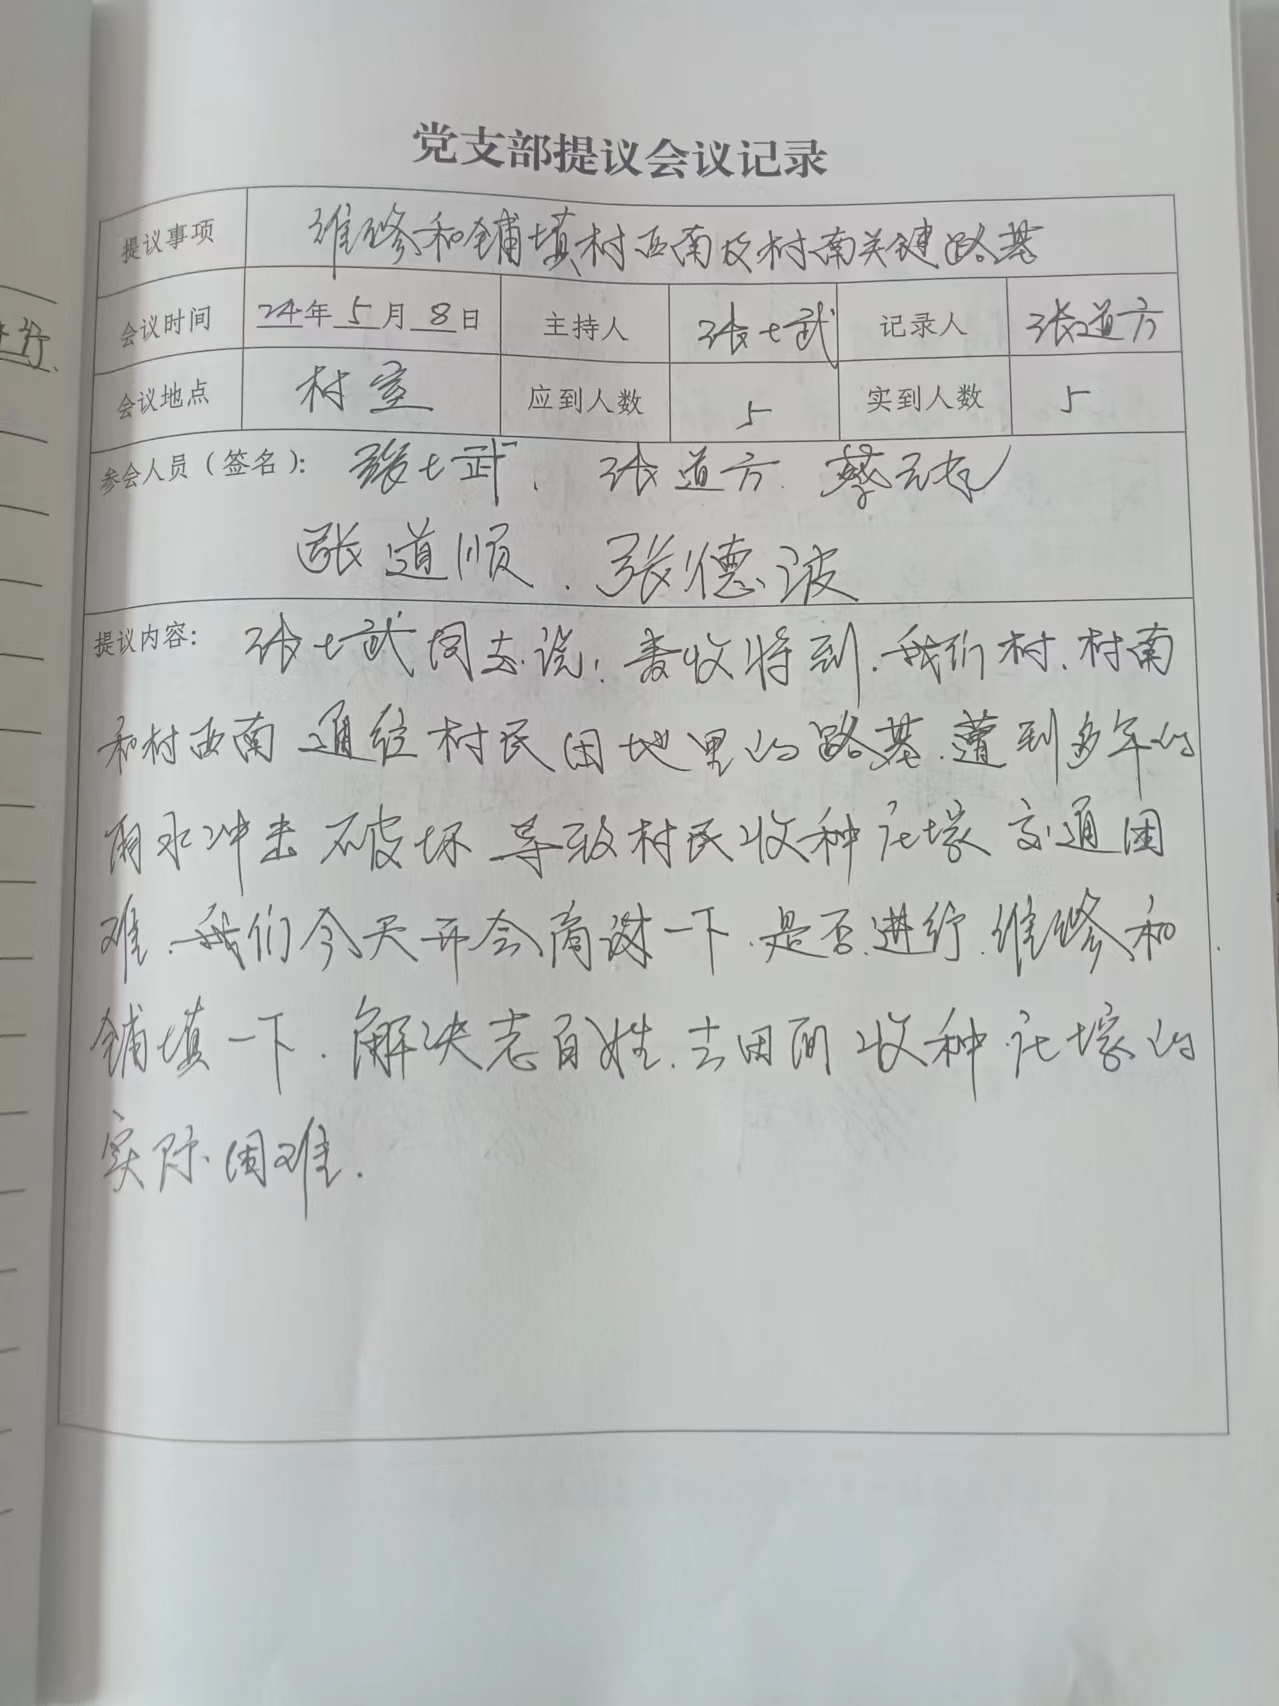 党支部提议会议记录
提议事项 维修和铺填村西南及村南关键路基
会议时间 24年5月8日 主持人 张士武 记录人 张道方
会议地点 村室 应到人数 5 实到人数 5
参会人员（签名）： 张士武、张道方、蔡
张道顺、张德波
提议内容： 张士武同志说：麦收将到、我们村、村南
和村西南通往村民田地里的路基、遭到多年的
雨水冲击破坏导致村民收种庄稼交通困
难、我们今天开会商议一下、是否进行、维修和
铺填一下、解决老百姓、去田间收种庄稼的
实际困难.